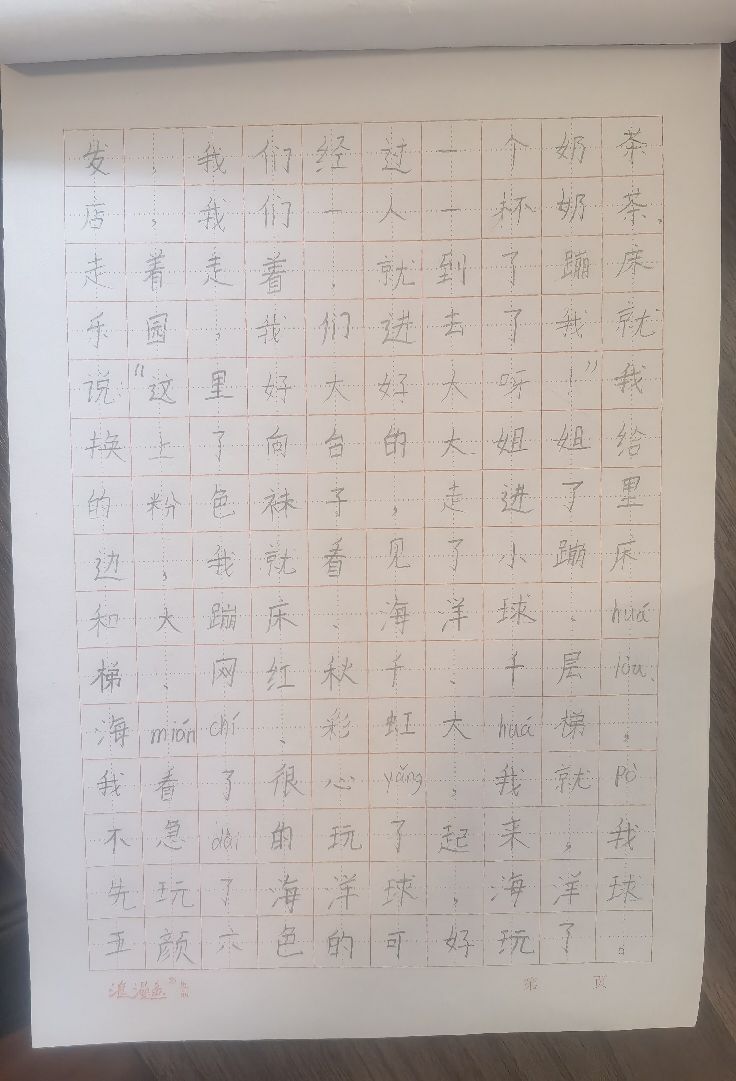 发，我们经过一个奶茶
店，我们一人一杯奶茶、
走着走着，就到了蹦床
乐园，我们进去了我就
说“这里好大好大呀！”我
换上了向台的大姐姐给
的粉色袜子，走进了里
边，我就看见了小蹦床
和大蹦床、海洋球、huá
梯、网红秋千、千层lóu、
海mián chí、彩虹大huá梯，
我看了很心yǎng，我就pò
不急dāi的玩了起来，我
先玩了海洋球，海洋球
五颜六色的可好玩了。
第 页